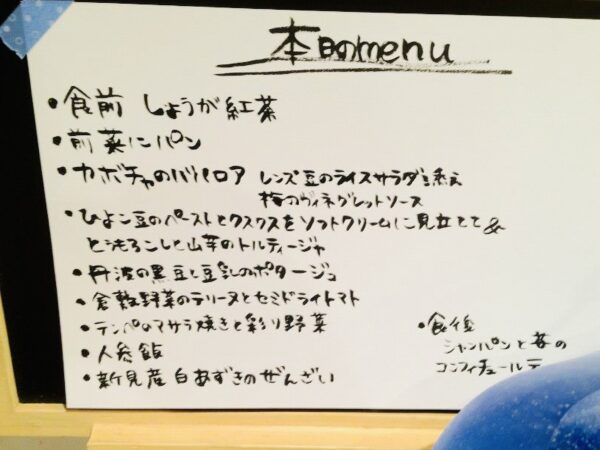 本日のmenu
・食前 しょうが紅茶
・前菜にパン
・カボチャのババロア レンズ豆のライスサラダを添え
梅のヴィネグレットソース
・ひよこ豆のペーストとクスクスをソフトクリームに見立てて&
とうもろこしと山芋のトルティージャ
・丹波の黒豆と豆乳のポタージュ
・倉敷野菜のテリーヌとセミドライトマト
・テンペのマサラ焼きと彩り野菜
・人参飯
・新見産白あずきのぜんざい
・食後
シャンパンと苺の
コンフィチュール